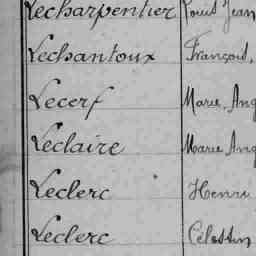 Lecharpentier Louis Jean
Lechantoux François,
Lecerf Marie Ang
Leclaire Marie Ang
Leclerc Henri
Leclerc Célestin